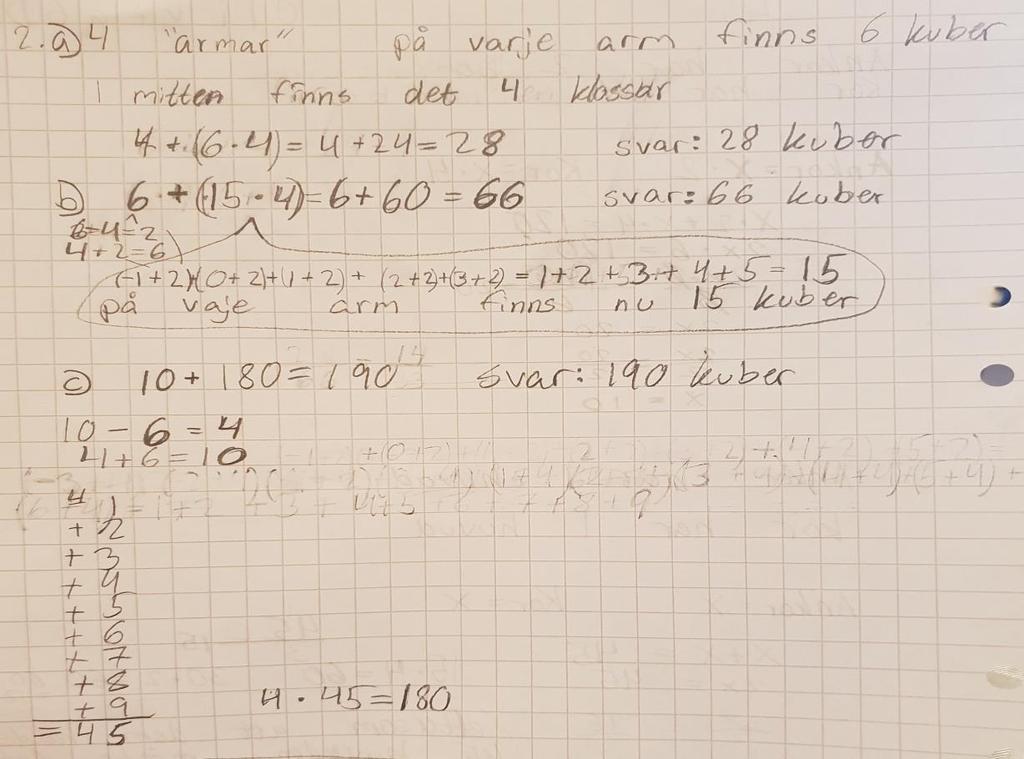 2. a) 4 "armar" på varje arm finns 6 kuber
I mitten finns det 4 klossar
4 + (6 · 4) = 4 + 24 = 28 svar: 28 kuber
b) 6 + (15 · 4) = 6 + 60 = 66 svar: 66 kuber
6-4=2
4+2=6
(-1+2)+(0+2)+(1+2)+(2+2)+(3+2) = 1+2+3+4+5=15
på vaje arm finns nu 15 kuber
c) 10 + 180 = 190 svar: 190 kuber
10 - 6 = 4
4+6=10
1
+ 2
+ 3
+ 4
+ 5
+ 6
+ 7
+ 8
+ 9
= 45
4 · 45 = 180